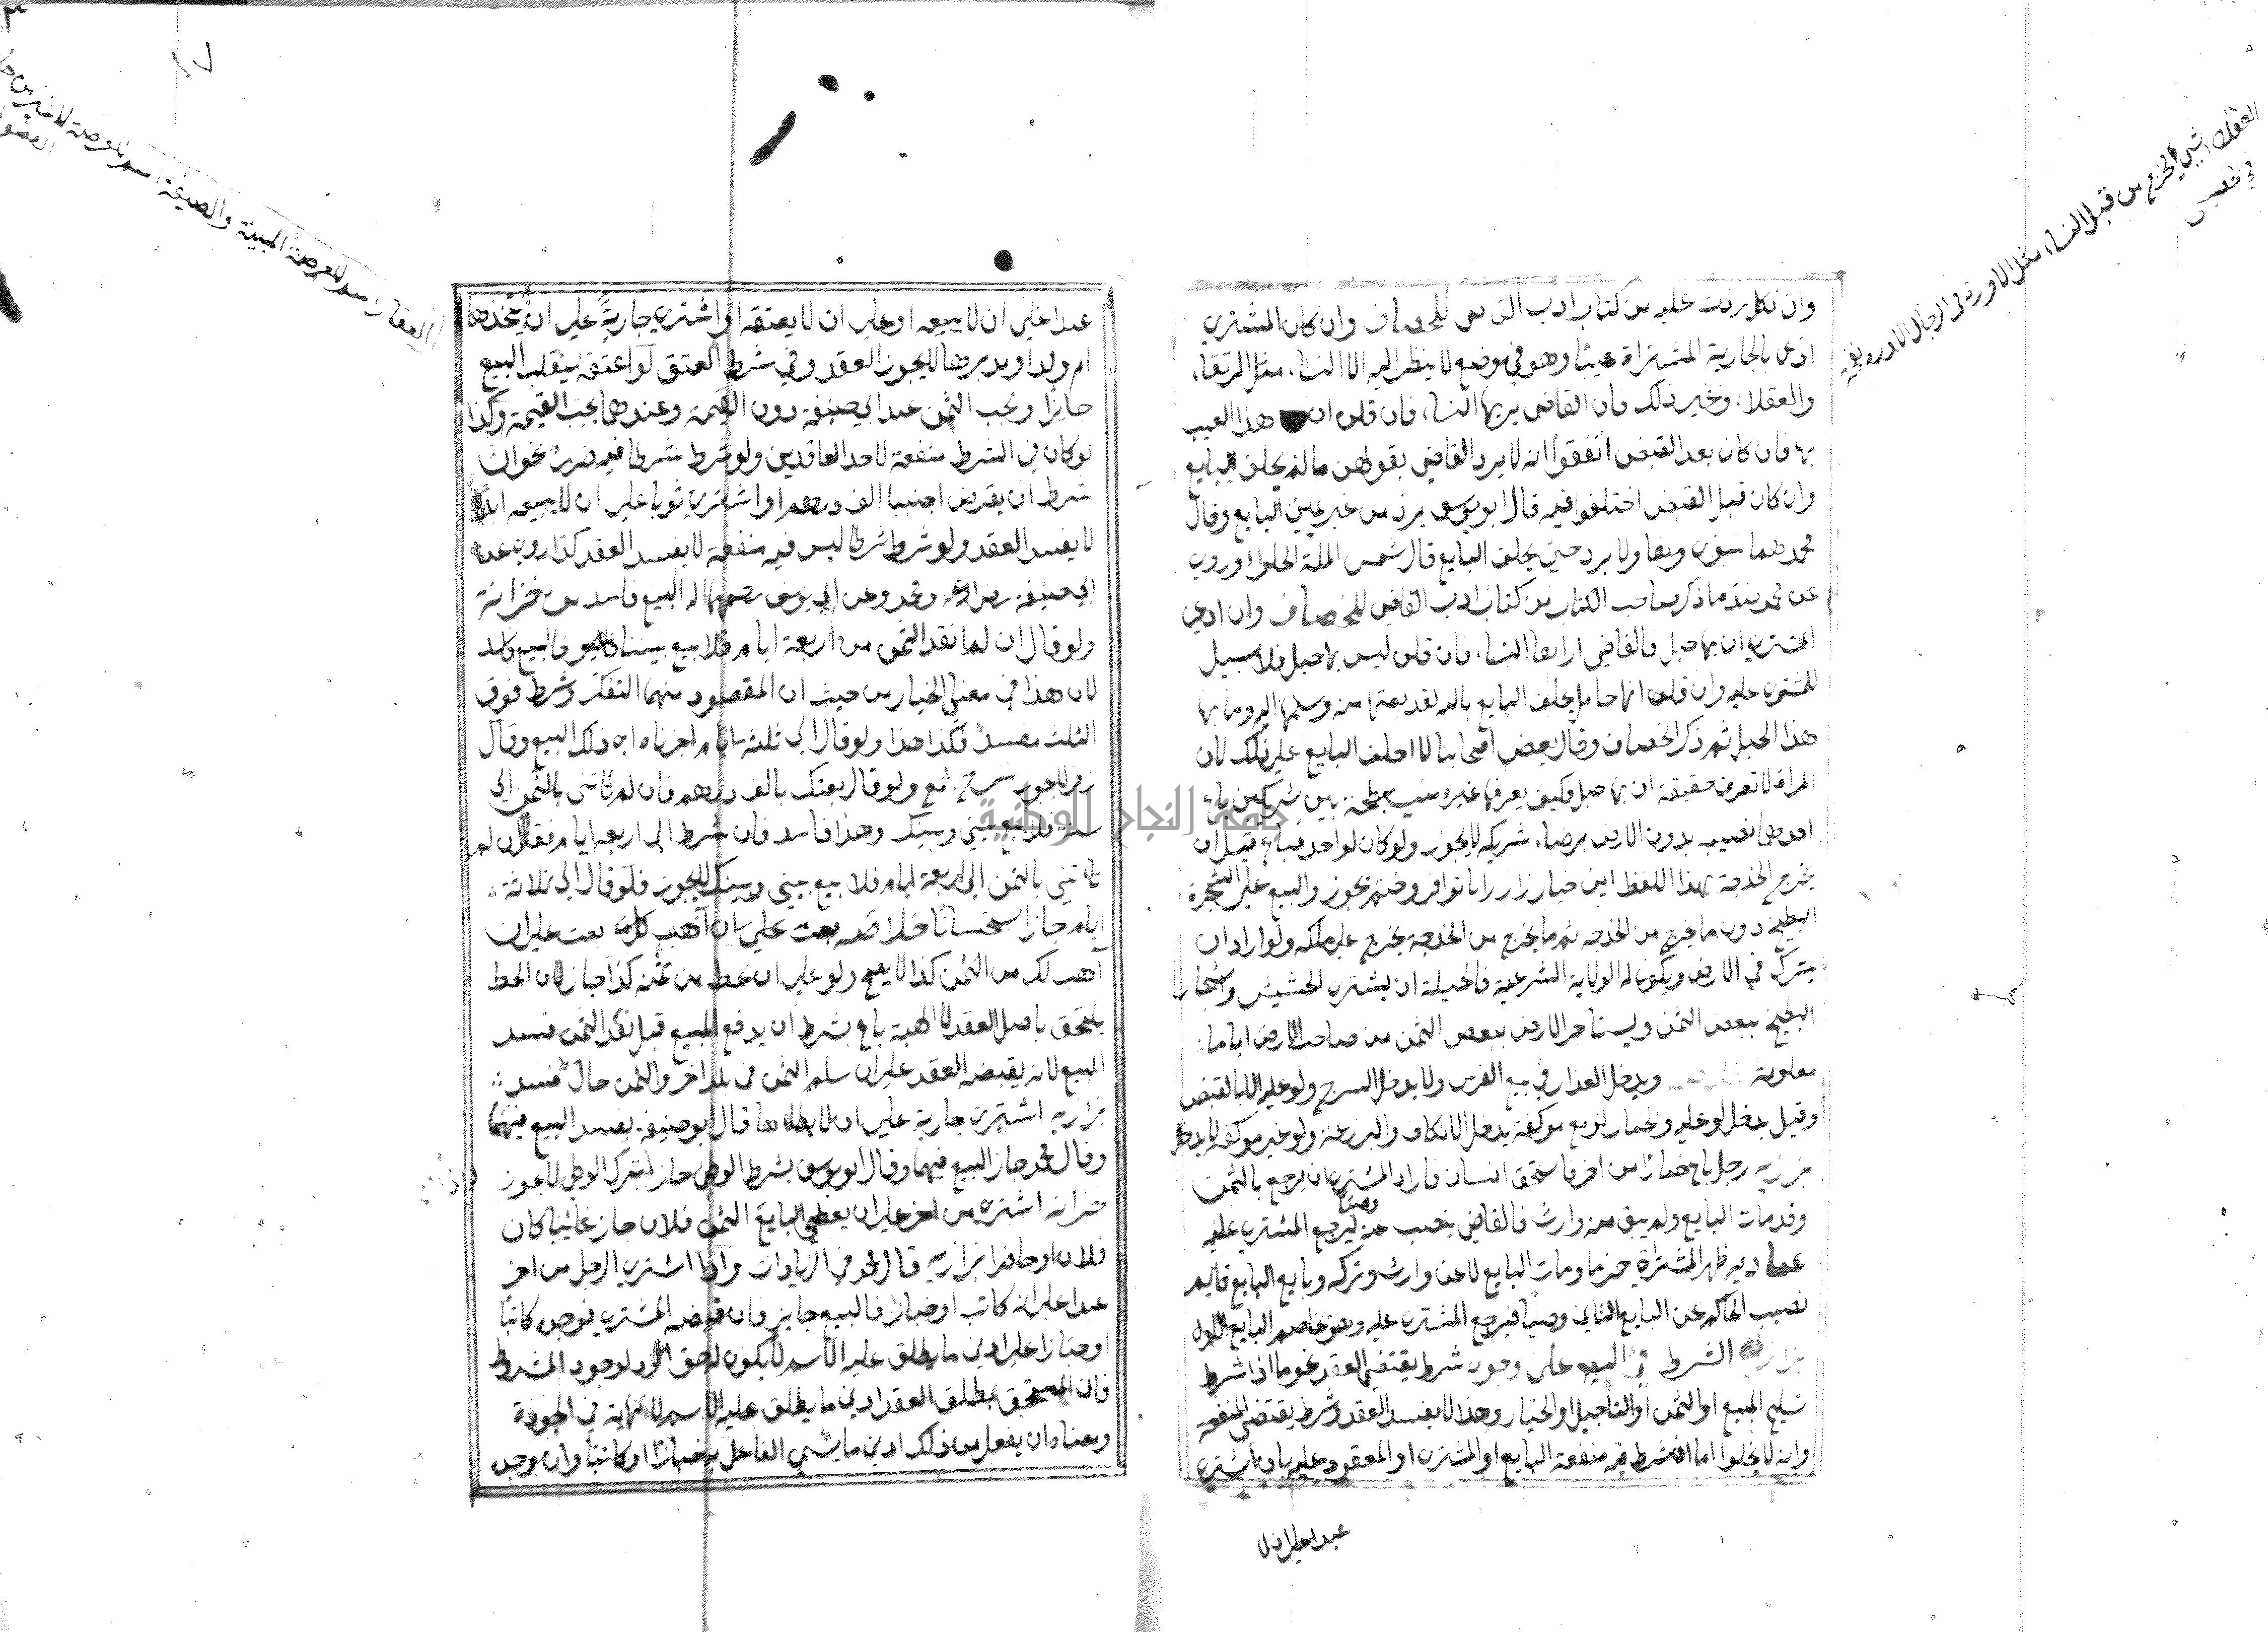 وان نكل ردت عليه من كتاب ادب القاضي للخصاف وان كان المشتري
ادعى بالجارية المشتراة عيبا وهو في موضع لا ينظر اليه الا النساء مثل الرتقاء
والعفلاء وغير ذلك فان القاضي يريها النساء فان قلن ان هذا العيب
بها فان كان بعد القبض اتفقوا انه لا يرد القاضي بقولهن مالم يحلف البايع
وان كان قبل القبض اختلفوا فيه قال ابو يوسف يرد من غير يمين البايع وقال
محمد هما سوى ولا يرد حتى يحلف البايع قال شمس الملة الحلوا وروي
عن محمد ما ذكر صاحب الكتاب من كتاب ادب القاضي للخصاف وان ادعي
المشتري ان بها حبل فالقاضي اراها النساء فان قلن ليس بها حبل فلا سبيل
للمشتري عليه وان قلن انها حامل يحلف البايع بالله لقد بعتها منه وسلمها اليه وما بها
هذا الحبل ثم ذكر الخصاف وقال بعض اصحابنا لا احلف البايع على ذلك لان
المراة لا تعرف حقيقة ان بها حبل فكيف يعرفها غيره مبطخة بين شريكين باع
احدهما نصيبه بدون الارض برضاء شريكه لا يجوز ولو كان لواحد فباع قبل ان
يخرج الحدجة بهذا اللفظ اين خيار زار را باتو افروختم يجوز والبيع على الشجرة
البطيخ دون ما يخرج من الحدجه ثم ما يخرج من الحدجة يخرج على ملكه ولو اراد ان
يترك في الارض ويكون له الولاية الشرعية فالحيلة ان يشتري الحشيش واشجار
البطيخ ببعض الثمن ويستاجر الارض ببعض الثمن من صاحب الارض اياما
معلومة ويدخل العذار في بيع الفرس ولا يدخل السرج ولو عليه الا بالقبض
وقيل يدخل لو عليه ولحمار لو بيع موكفة يدخل الاكاف والبردعة ولو غير موكفة لا يدخل
بزازيه رجل باع حمارا من اخر فاستحق انسان فاراد المشتري ان يرجع بالثمن
وقد مات البايع ولم يبق منه وارث فالقاضي ينصب عنه وصيا ليرجع المشتري عليه
عماديه ظهر المشتراة حرة وماومات البايع لا عن وارث وتركه وبايع البايع قايم
نصب الحاكم عن البايع الثاني وصيا فيرجع المشتري عليه وهو يخاصم البايع الاول
بزازيه الشرط في البيع على وجوه شرط يقتضي العقد نحو ما اذا شرط
تسليم المبيع او الثمن او التاجيل او الخيار وهذا لا يفسد العقد وشرط يقتضي المنفعة
وانه لا يخلوا اما ان شرط فيه منفعة البايع او المشتري او المعقود عليه بان اشتري
عبدا على ان لا
عبدا على ان لا يبيعه او على ان لا يعتقه او اشتري جارية على ان يتخذها
ام ولد او يدبرها لا يجوز العقد وفي شرط العتق لو اعتقه ينقلب البيع
جايزا ويجب الثمن عند ابي حنيفة دون القيمة وعندهما يجب القيمة وكذا
لو كان في الشرط منفعة لاحد العاقدين ولو شرط شرطا فيه ضرر نحو ان
شرط ان يقرض اجنبيا الف درهم او اشتري ثوبا على ان لا يبيعه ابدا
لا يفسد العقد ولو شرط شرطا ليس فيه منفعة لا يفسد العقد كذا روي عن
ابي حنيفة ومحمد وعن ابي يوسف رحمهما الله البيع فاسد من خزانة
ولو قال ان لم انقد الثمن من اربعة ايام فلا بيع بيننا فالبيع فاسد
لان هذا في معنى الخيار من حيث ان المقصود منهما التفكر وشرط فوق
الثلث مفسد فكذا هذا ولو قال الى ثلثة ايام اجزناه اي ذلك البيع وقال
زفر لا يجوز شرح مجمع ولو قال بعتك بالف درهم فان لم تاتني بالثمن الي
سنة فلا بيع بيني وبينك وهذا فاسد فان شرط الى اربعة ايام فقال ان لم
تاتيني بالثمن الى اربعة ايام فلا بيع بيني وبينك لا يجوز فلو قال الى ثلاثة
ايام جاز استحسانا خلاصه بعت على ان اهب لك بعت على ان
اهب لك من الثمن كذا لا يصح ولو على ان نحط من ثمنه كذا جاز لان الحط
يلتحق باصل العقد لا الهبة باع بشرط ان يدفع المبيع قبل نقد الثمن فسد
البيع لانه يقتضه العقد على ان سلم الثمن في بلد اخر والثمن حال فسد
بزازيه اشتري جارية على ان لا يطاها قال ابو حنيفة يفسد البيع فيهما
وقال محمد جاز البيع فيهما وقال ابو يوسف بشرط الوطي جاز بترك الوطي لا يجوز
خزانه اشتري من اخر على ان يعطي البايع الثمن فلان جاز غائبا كان
فلان او حاضرا بزازيه قال محمد في الزيادات واذا اشتري الرجل من اخر
عبدا على انه كاتب او خباز فالبيع جايز فان قبضه المشتري فوجده كاتبا
او خبازا على ادنى ما يطلق عليه الاسم لا يكون له حق الرد لوجود المشروط
فان المستحق بمطلق العقد ادنى ما يطلق عليه الاسم لا نهاية في الجودة
ومعناه ان يفعل من ذلك ادنى ما يسمي الفاعل به خبازا او كاتبا وان وجد
جامعة النجاح الوطنية
العقار اسم للعرصة المبنية والضيعة اسم للعرصة لا غير من